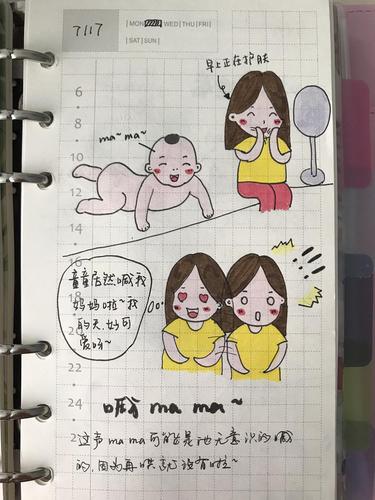 7/17
|MON|TUE|WED|THU|FRI|
|SAT|SUN|
早上正在护肤
ma~ma~
6
8
10
12
14
童童居然喊我
妈妈啦~我
的天,好可
爱呀~
22
24
喊了 ma ma~
这声ma ma可能是他无意识的喊
的,因为再哄就没有啦~